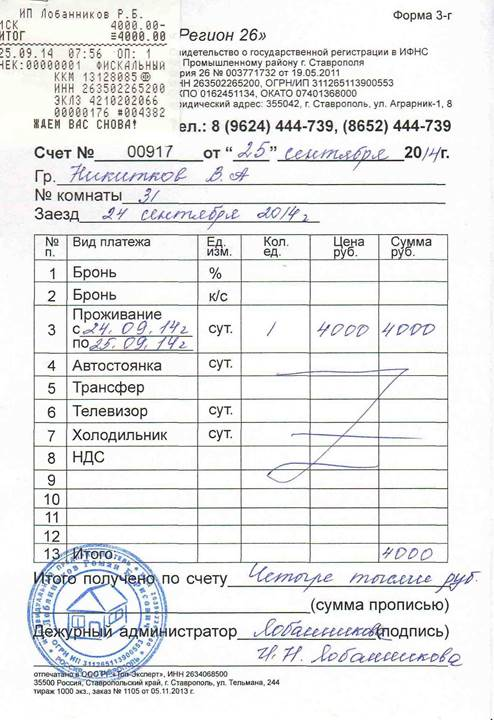 ИП Лобанников Р.Б.
ИСК 4000.00-
ИТОГ ≡4000.00
25.09.14 07:56 ОП: 1
ЧЕК:00000001 ФИСКАЛЬНЫЙ
ККМ 13128085
ИНН 263502265200
ЭКЛЗ 4210202066
00000176 #004382
ЖДЕМ ВАС СНОВА!
Форма 3-г
«Регион 26»
видетельство о государственной регистрации в ИФНС
Промышленному району г. Ставрополя
ерия 26 № 003771732 от 19.05.2011
НН 263502265200, ОГРН/ИП 311265113900553
КПО 0162451134, ОКАТО 07401368000
ридический адрес: 355042, г. Ставрополь, ул. Аграрник-1, 8
ел.: 8 (9624) 444-739, (8652) 444-739
Счет № 00917 от “25” сентября 2014г.
Гр. Никитков В.А
№ комнаты 31
Заезд 24 сентября 2014г.
№ п. Вид платежа Ед. изм. Кол. ед. Цена руб. Сумма руб.
1 Бронь %
2 Бронь к/с
3 Проживание с 24.09.14г по 25.09.14г сут. 1 4000 4000
4 Автостоянка сут.
5 Трансфер
6 Телевизор сут.
7 Холодильник сут.
8 НДС
9
10
11
12
13 Итого: 4000
Итого получено по счету Четыре тысячи руб.
(сумма прописью)
Дежурный администратор Лобанникова (подпись)
И.Н. Лобанникова
отпечатано в ООО РГ «Топ-Эксперт», ИНН 2634068500
35500 Россия, Ставропольский край, г. Ставрополь, ул. Тельмана, 244
тираж 1000 экз., заказ № 1105 от 05.11.2013 г.
Лобанников Роман Борисович
ОГРН ИП 311265113900553